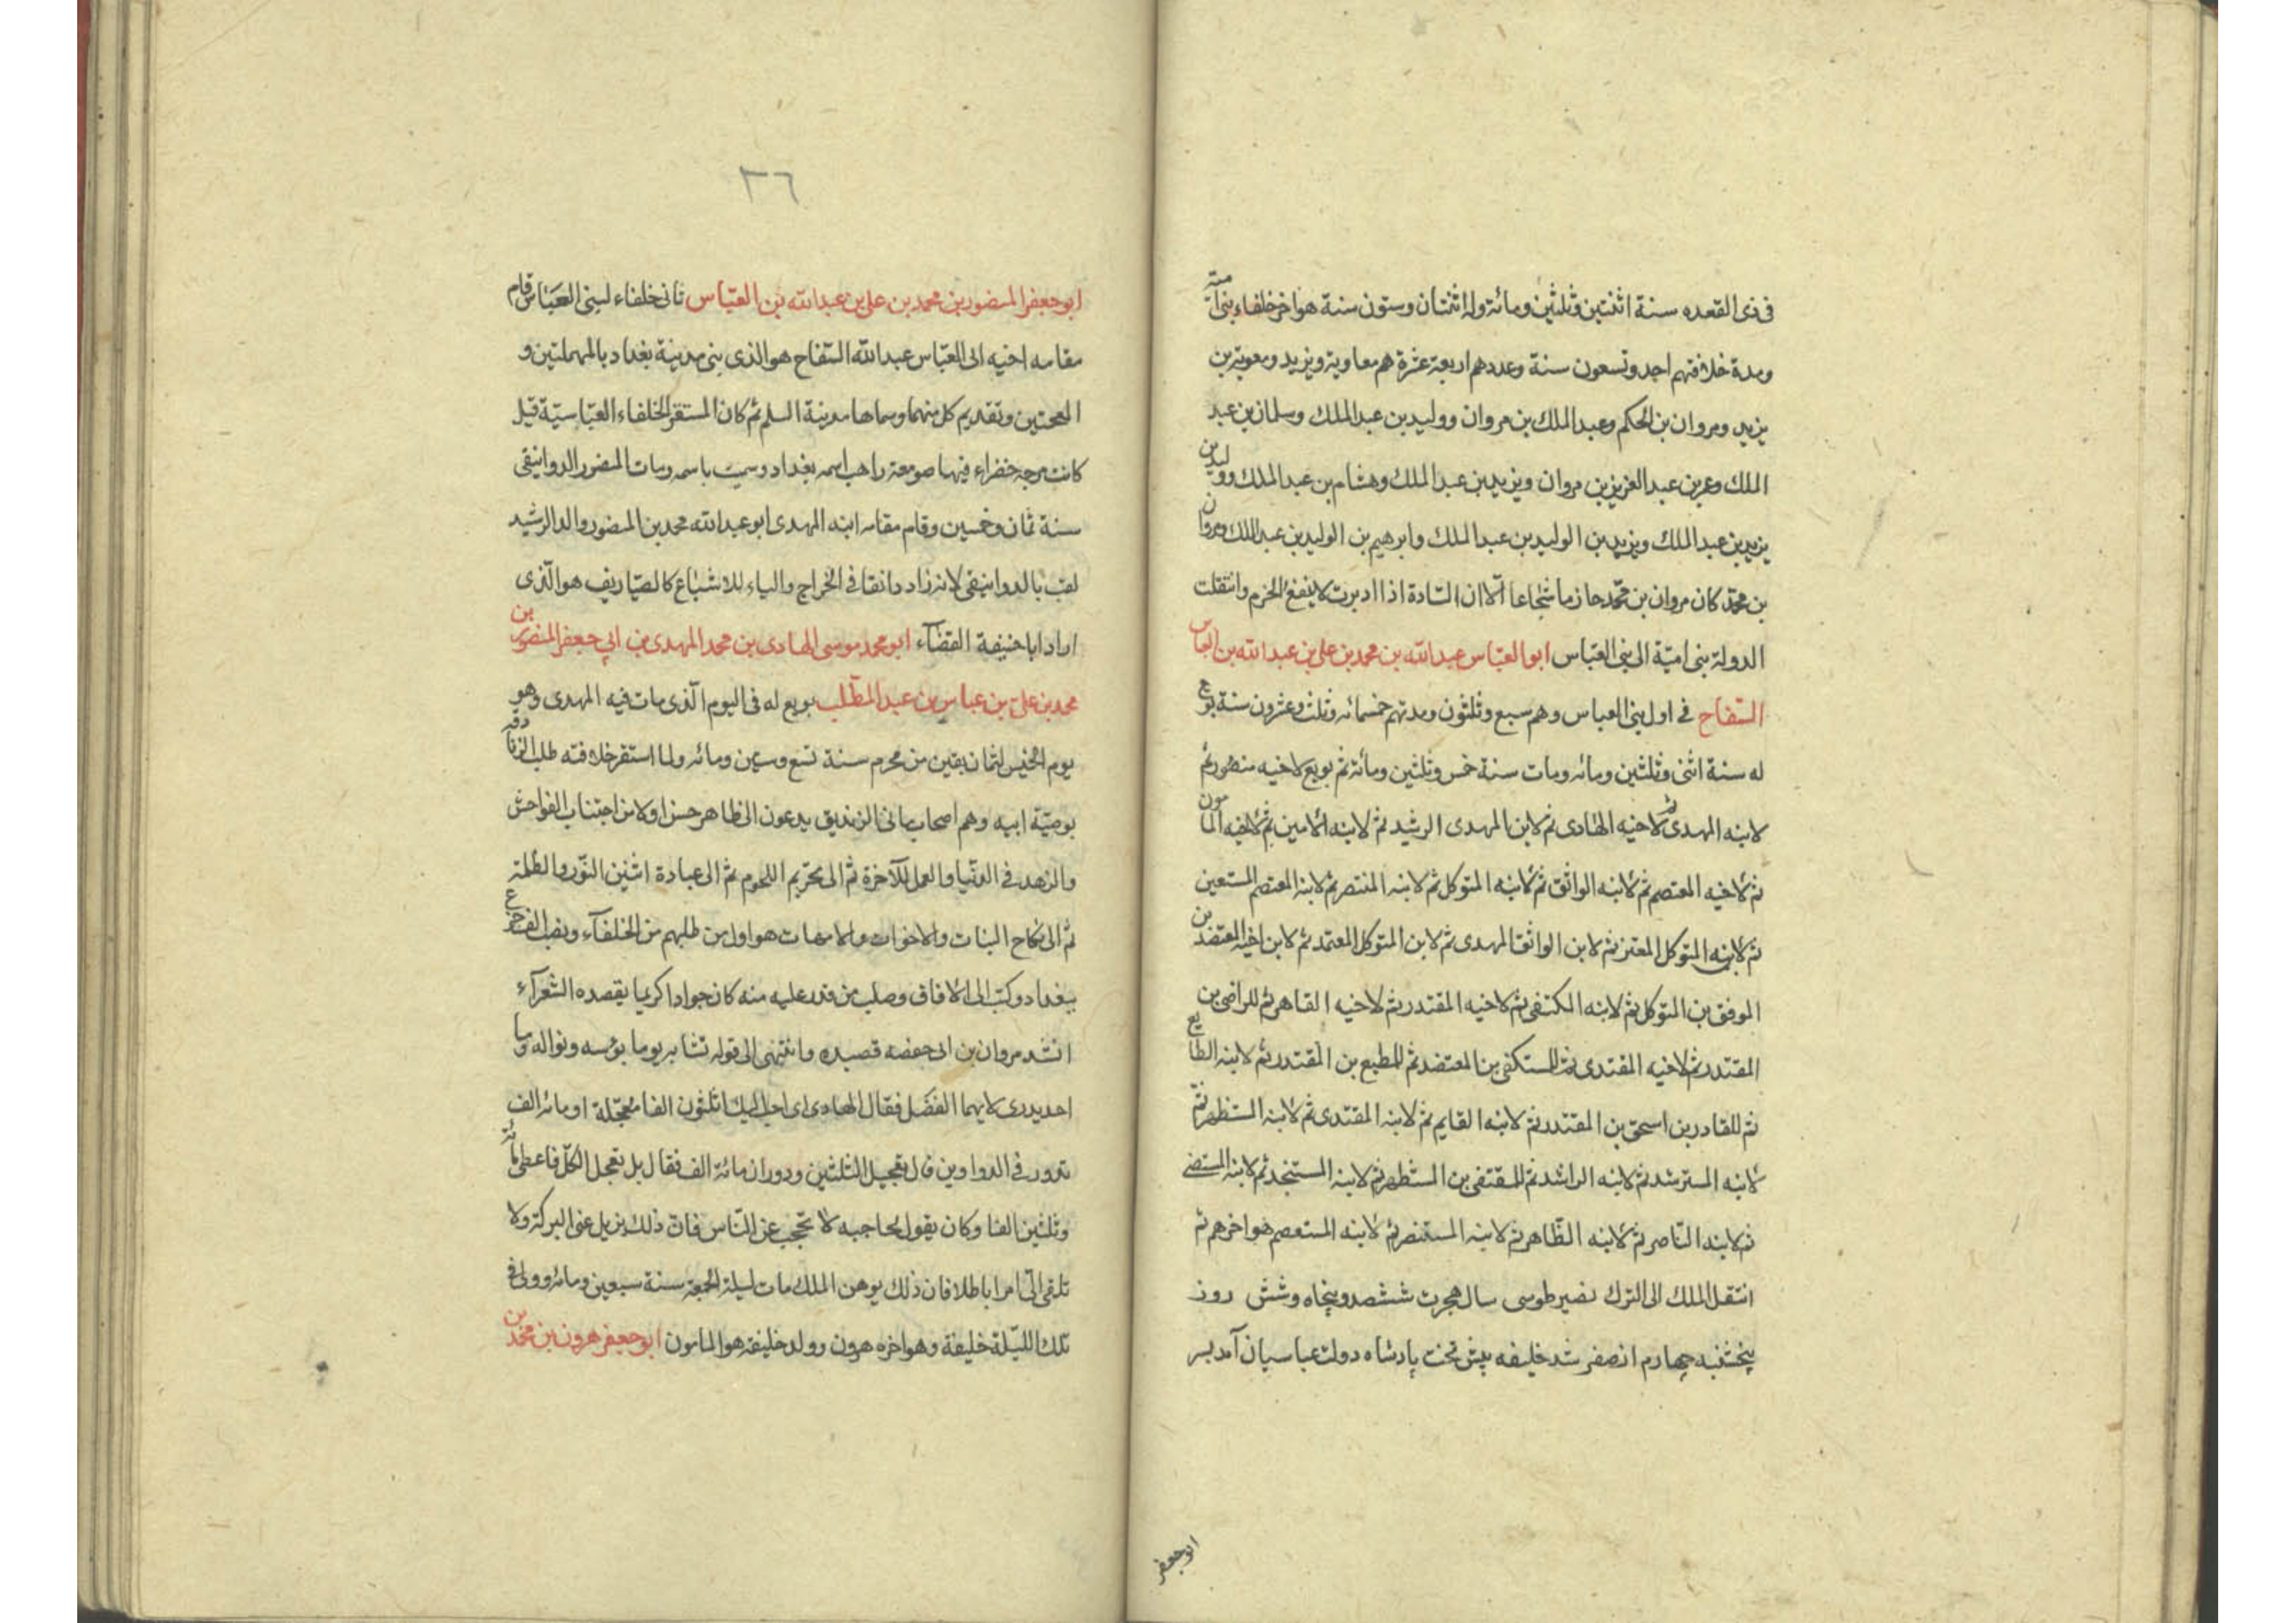 فى ذى القعده سنة اثنتين وثلثين ومائة وله اثنتان وستون سنة هو اخر خلفاء بنى امية
ومدة خلافتهم احد وتسعون سنة وعددهم اربعة عشرة هم معاوية ويزيد ومعوية بن
يزيد ومروان بن الحكم وعبد الملك بن مروان ووليد بن عبد الملك وسلمان بن عبد
الملك وعمر بن عبد العزيز بن مروان ويزيد بن عبد الملك وهشام بن عبد الملك ووليد بن
يزيد بن عبد الملك ويزيد بن الوليد بن عبد الملك وابرهيم بن الوليد بن عبد الملك ومروان
بن محمد كان مروان بن محمد حازما شجاعا الا ان السادة اذا ادبرت لا ينفع الحزم وانتقلت
الدولة بنى امية الى بنى العباس ابو العباس عبد الله بن محمد بن على بن عبد الله بن العباس
السفاح فى اول بنى العباس وهم سبع وثلثون ومدتهم خمسمائه وثلث وعشرون سنة بويع
له سنة اثنى وثلثين ومائه ومات سنة خمس وثلثين ومائة ثم بويع لاخيه منصور ثم
لابنه المهدى ثم لاخيه الهادى ثم لابن المهدى الرشيد ثم لابنه الامين ثم لاخيه المامون
ثم لاخيه المعتصم ثم لابنه الواثق ثم لابنه المتوكل ثم لابنه المنتصر ثم لابنه المعتصم المستعين
ثم لابنه المتوكل المعتز ثم لابن الواثق المهدى ثم لابن المتوكل المعتمد ثم لابن اخيه المعتضد بن
الموفق بن المتوكل ثم لابنه المكتفى ثم لاخيه المقتدر ثم لاخيه القاهر ثم للراضى بن
المقتدر ثم لاخيه المقتدى ثم للمستكفى بن المعتضد ثم للمطيع بن المقتدر ثم لابنه الطايع
ثم للقادر بن اسحق بن المقتدر ثم لابنه القايم ثم لابنه المقتدى ثم لابنه المستظهر ثم
لابنه المسترشد ثم لابنه الراشد ثم للمقتفى بن المستظهر ثم لابنه المستنجد ثم لابنه المستضى
ثم لابنه الناصر ثم لابنه الظاهر ثم لابنه المستنصر ثم لابنه المستعصم هو اخرهم ثم
انتقل الملك الى الترك نصير طوسى سال هجرت ششصد و پنجاه وشش روز
پنجشنبه چهارم از صفر شد خليفه پيش تخت پادشاه دولت عباسيان آمد بسر
ابو جعفر
٣٦
ابو جعفر المنصور بن محمد بن على بن عبد الله بن العباس ثانى خلفاء لبنى العباس قام
مقامه اخيه ابى العباس عبد الله السفاح هو الذى بنى مدينة بغداد بالمهملتين و
المعجمتين وتقديم كل منهما وسماها مدينة السلم ثم كان المستقر الخلفاء العباسية قيل
كانت مرجه خضراء فيها صومعة راهب اسمه بغداد وسميت باسمه ومات المنصور الدوانيقى
سنة ثمان وخمسين وقام مقامه ابنه المهدى ابو عبد الله محمد بن المنصور والد الرشيد
لقب بالدوانيقى لانه زاد دانقا فى الخراج والياء للاشباع كالصياريف هو الذى
اراد ابا حنيفة القضآء ابو محمد موسى الهادى بن محمد المهدى بن ابى جعفر المنصور بن
محمد بن على بن عباس بن عبد المطلب بويع له فى اليوم الذى مات فيه المهدى وهو
يوم الخميس لثمان بقين من محرم سنة تسع وستين ومائه ولما استقر خلافته طلب الزنادقه
بوصية ابيه وهم اصحاب مانى الزنديق يدعون الى ظاهر حسن اولا من اجتناب الفواحش
والزهد فى الدنيا والعمل للآخرة ثم الى تحريم اللحوم ثم الى عبادة اثنين النور والظلمة
ثم الى نكاح البنات والاخوات والامهات هو اول من طلبهم من الخلفآء ونصب
ببغداد وكتب الى الافاق وصلب من قدر عليه منه كان جوادا كريما يقصده الشعرآء
انشد مروان بن ابى حفصه قصيده وانتهى الى قوله تشابه يوما بؤسه ونواله وما
احد يدرى لايهما الفضل فقال الهادى اى احب اليك اثلثون الفا معجلة او مائه الف
تدور فى الدواوين قال تعجيل الثلثين ودوران مائة الف فقال بل تعجل الكل فاعطى مائة
وثلثين الفا وكان يقول لحاجبه لا تحجب عن الناس فان ذلك يزيل عنى البركة ولا
تلقى الى امرا باطلا فان ذلك يوهن الملك مات ليلة الجمعة سنة سبعين ومائه وولى فى
تلك الليلة خليفة وهو اخره هرون وولد خليفة هو المامون ابو جعفر هرون بن محمد بن